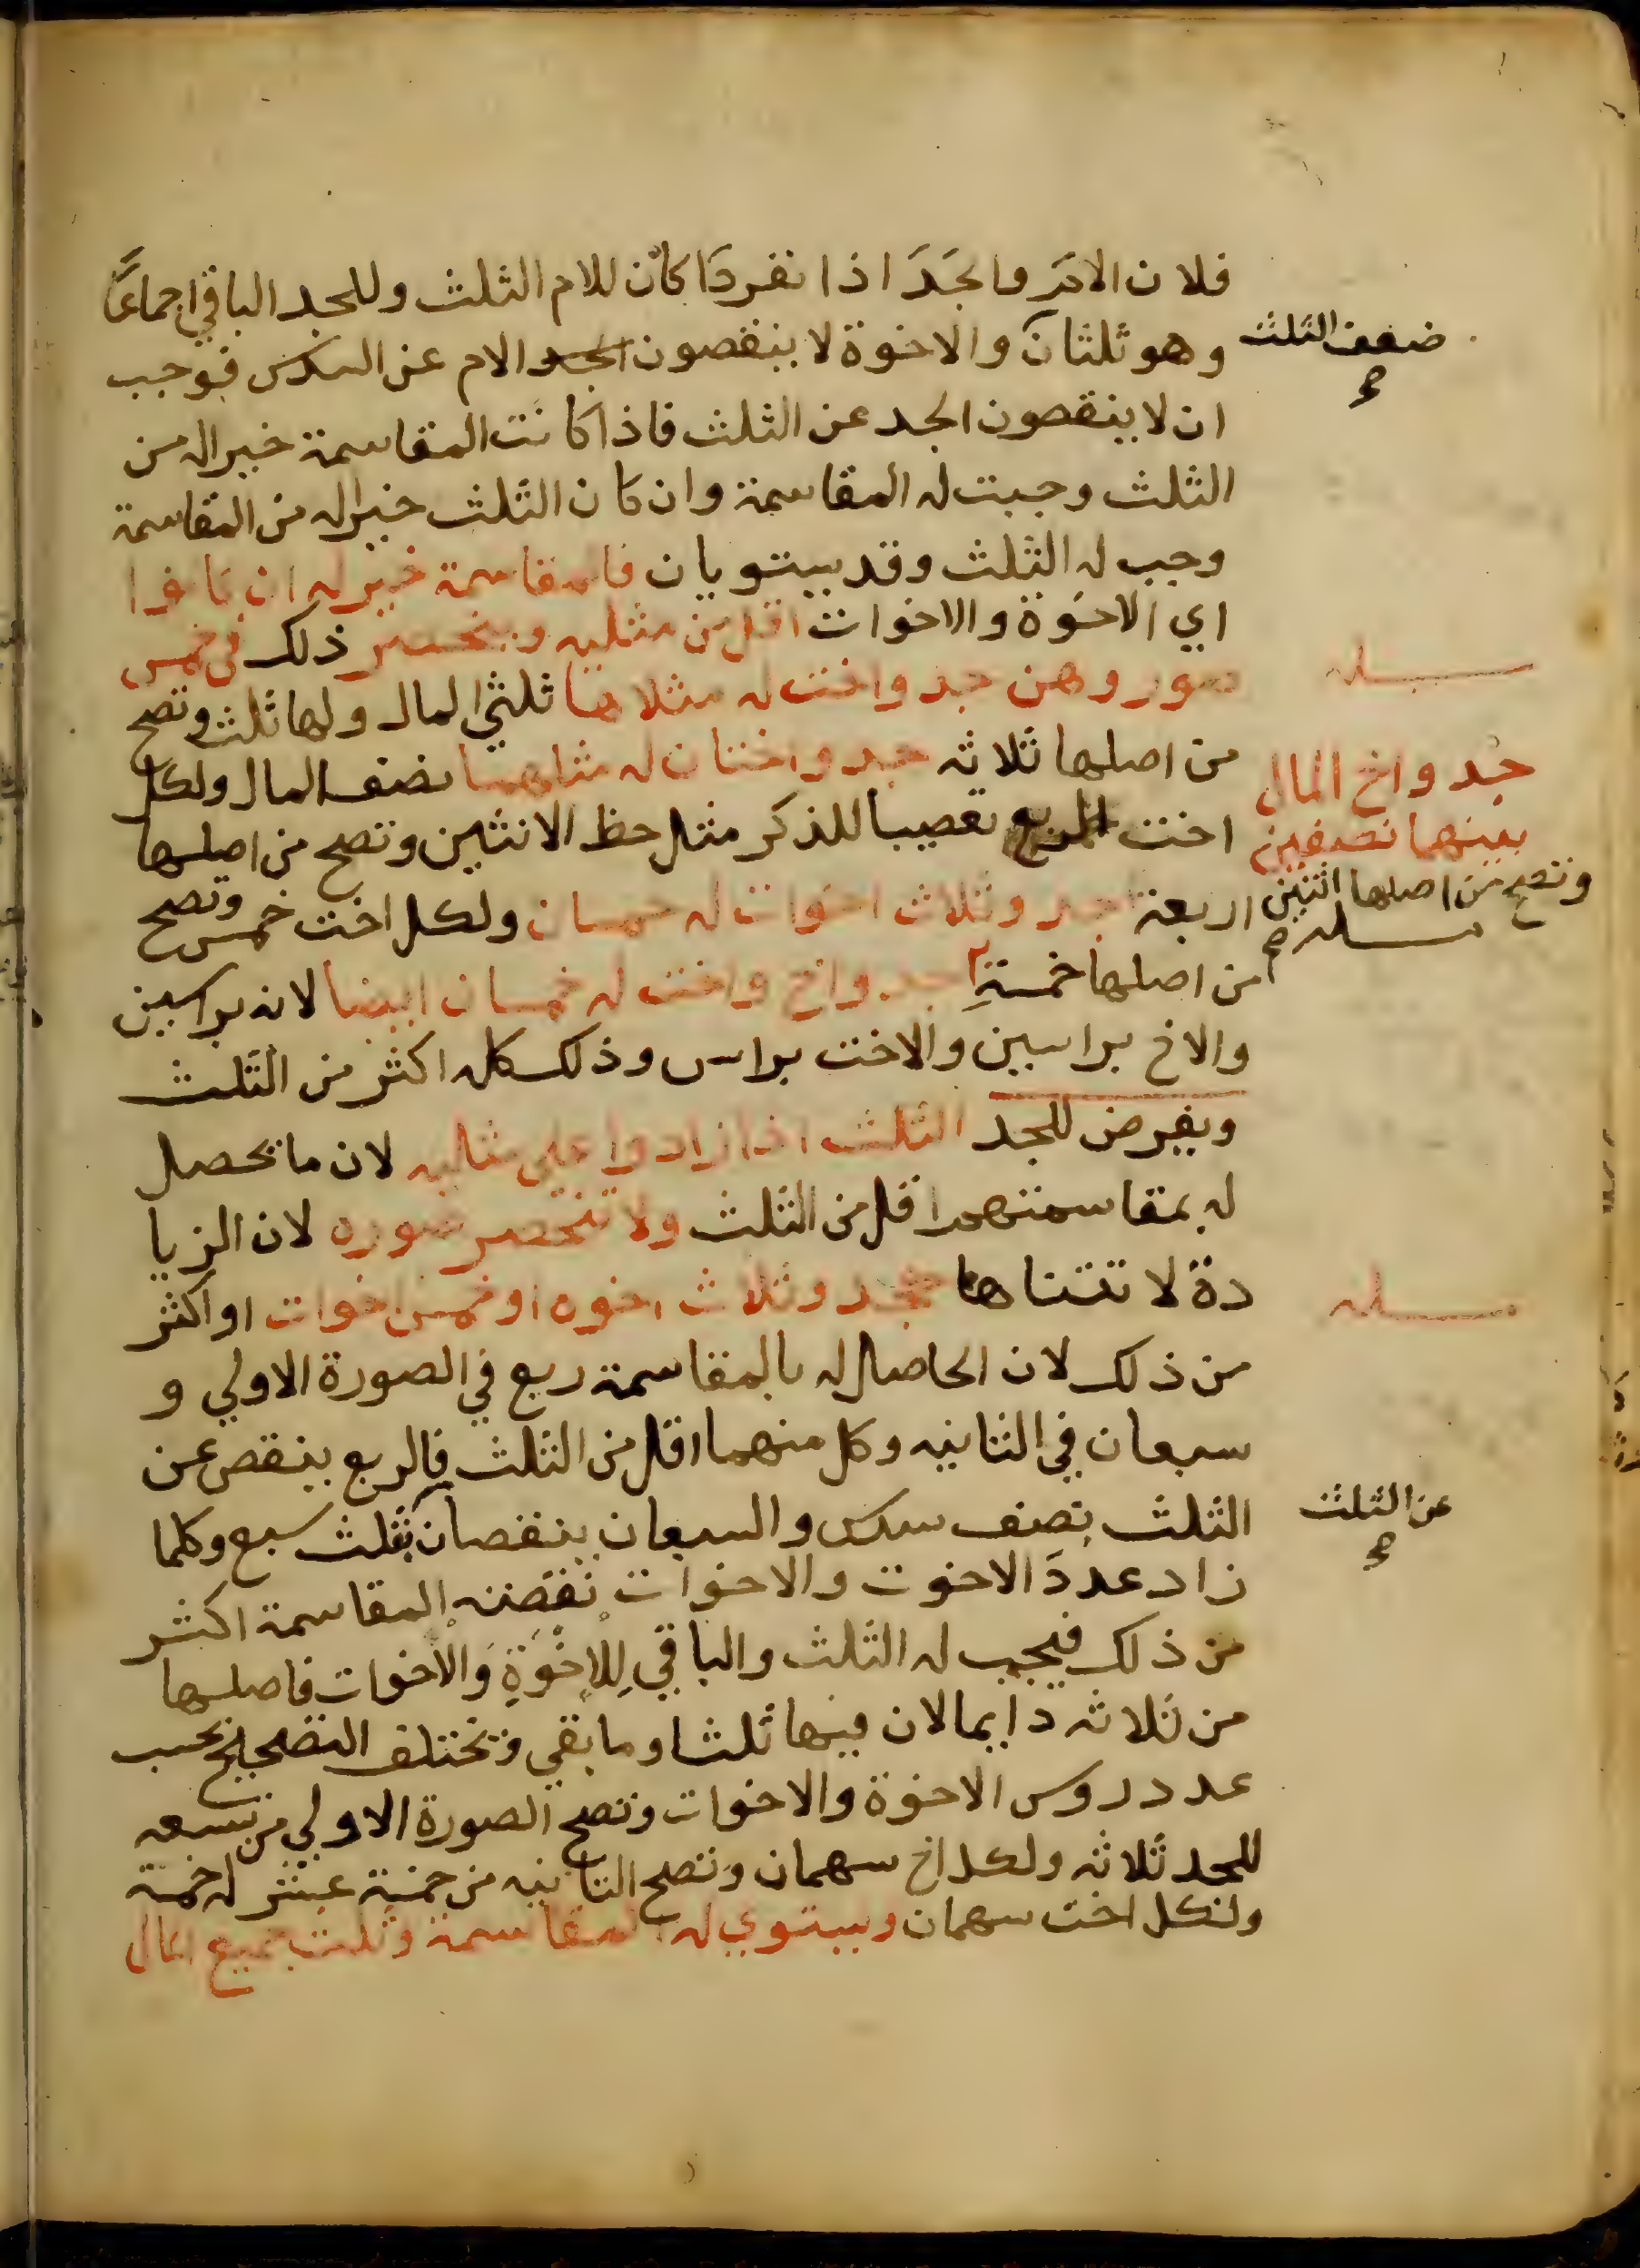 فلان الام والجد اذا انفردا كان للام الثلث وللجد الباقي اجماعا
وهو ثلثان والاخوة لا ينقصون الجد الام عن السدس فوجب
ضعف الثلث
صح
ان لا ينقصون الجد عن الثلث فاذا كانت المقاسمة خيرا له من
الثلث وجبت له المقاسمة وان كان الثلث خيرا له من المقاسمة
وجب له الثلث وقد يستويان فالمقاسمة خير له ان كانوا
اي الاخوة والاخوات اقل من مثليه وينحصر ذلك في خمس
صور وهن جد واخت له مثلاها ثلثي المال ولها ثلث وتصح
من اصلها ثلاثه جد واختان له مثلاهما نصف المال ولكل
اخت الربع تعصيبا للذكر مثل حظ الانثيين وتصح من اصلها
اربعة جد وثلاث اخوات له خمسان ولكل اخت خمس وتصح
مسله
جد واخ المال
بينهما نصفين
وتصح من اصلها اثنين
مسله صح
من اصلها خمسة جد واخ واخت له خمسان ايضا لانه براسين
والاخ براسين والاخت براس وذلك كله اكثر من الثلث
ويفرض للجد الثلث اذا زادوا على مثليه لان ما يحصل
له بمقاسمتهم اقل من الثلث ولا تنحصر صوره لان الزيا
دة لا تتناها كجد وثلاث اخوه او خمس اخوات او اكثر
مسله
من ذلك لان الحاصل له بالمقاسمة ربع في الصورة الاولي و
سبعان في الثانيه وكل منهما اقل من الثلث فالربع ينقص عن
الثلث بنصف سدس والسبعان ينقصان بثلث سبع وكلما
عن الثلث
صح
زاد عدد الاخوت والاخوات نقصته المقاسمة اكثر
من ذلك فيجب له الثلث والباقي للاخوة والاخوات فاصلها
من ثلاثه دايما لان فيها ثلثا وما بقي وتختلف التصحيح بحسب
عدد روس الاخوة والاخوات وتصح الصورة الاولي من تسعه
للجد ثلاثه ولكل اخ سهمان وتصح الثانيه من خمسة عشر له خمسة
ولكل اخت سهمان ويستوي له المقاسمة وثلث جميع المال